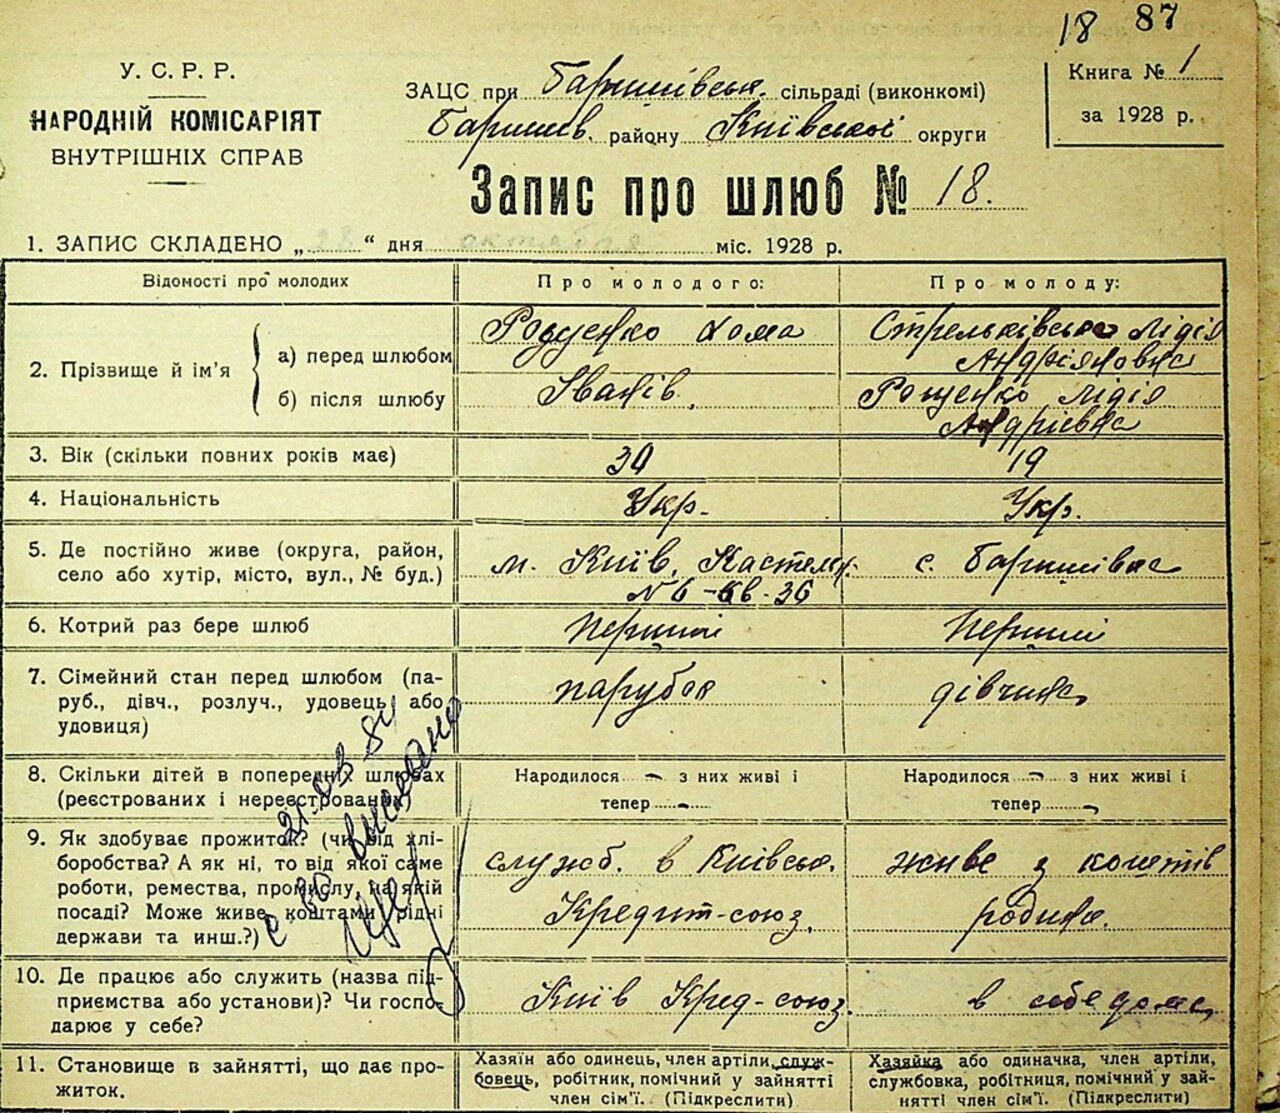 18 87
У. С. Р. Р.
НАРОДНІЙ КОМІСАРІЯТ
ВНУТРІШНІХ СПРАВ
ЗАЦС при Баришівськ. сільраді (виконкомі)
Баришів. району Київської округи
Книга № 1
за 1928 р.
Запис про шлюб № 18.
1. ЗАПИС СКЛАДЕНО „ “ дня октября міс. 1928 р.
Відомості про молодих
Про молодого:
Про молоду:
2. Прізвище й ім'я
а) перед шлюбом
б) після шлюбу
Рощенко Хома
Іванів.
Стрельківська Лідія
Андріяновна
Рощенко Лідія
Андрієвна
3. Вік (скільки повних років має)
30
19
4. Національність
Укр.
Укр.
5. Де постійно живе (округа, район,
село або хутір, місто, вул., № буд.)
м. Київ, Кастельн.
N 6 - кв. 36
с. Баришівка
6. Котрий раз бере шлюб
Перший
Перший
7. Сімейний стан перед шлюбом (па-
руб., дівч., розлуч., удовець або
удовиця)
парубок
дівчина
8. Скільки дітей в попередніх шлюбах
(реєстрованих і нереєстрованих)
Народилося - з них живі і
тепер -
Народилося - з них живі і
тепер -
9. Як здобуває прожиток? (чи від хлі-
боробства? А як ні, то від якої саме
роботи, ремества, промислу, на якій
посаді? Може живе коштами рідні
держави та инш.?)
служб. в Київськ.
Кредит-союз.
живе з коштів
родини.
10. Де працює або служить (назва під-
приємства або установи)? Чи госпо-
дарює у себе?
Київ Кред-союз.
в себе дома,
11. Становище в зайнятті, що дає про-
житок.
Хазяїн або одинець, член артіли, служ-
бовець, робітник, помічний у зайнятті
член сім'ї. (Підкреслити)
Хазяйка або одиначка, член артіли,
службовка, робітниця, помічний у зай-
нятті член сім'ї. (Підкреслити)
21.03.84